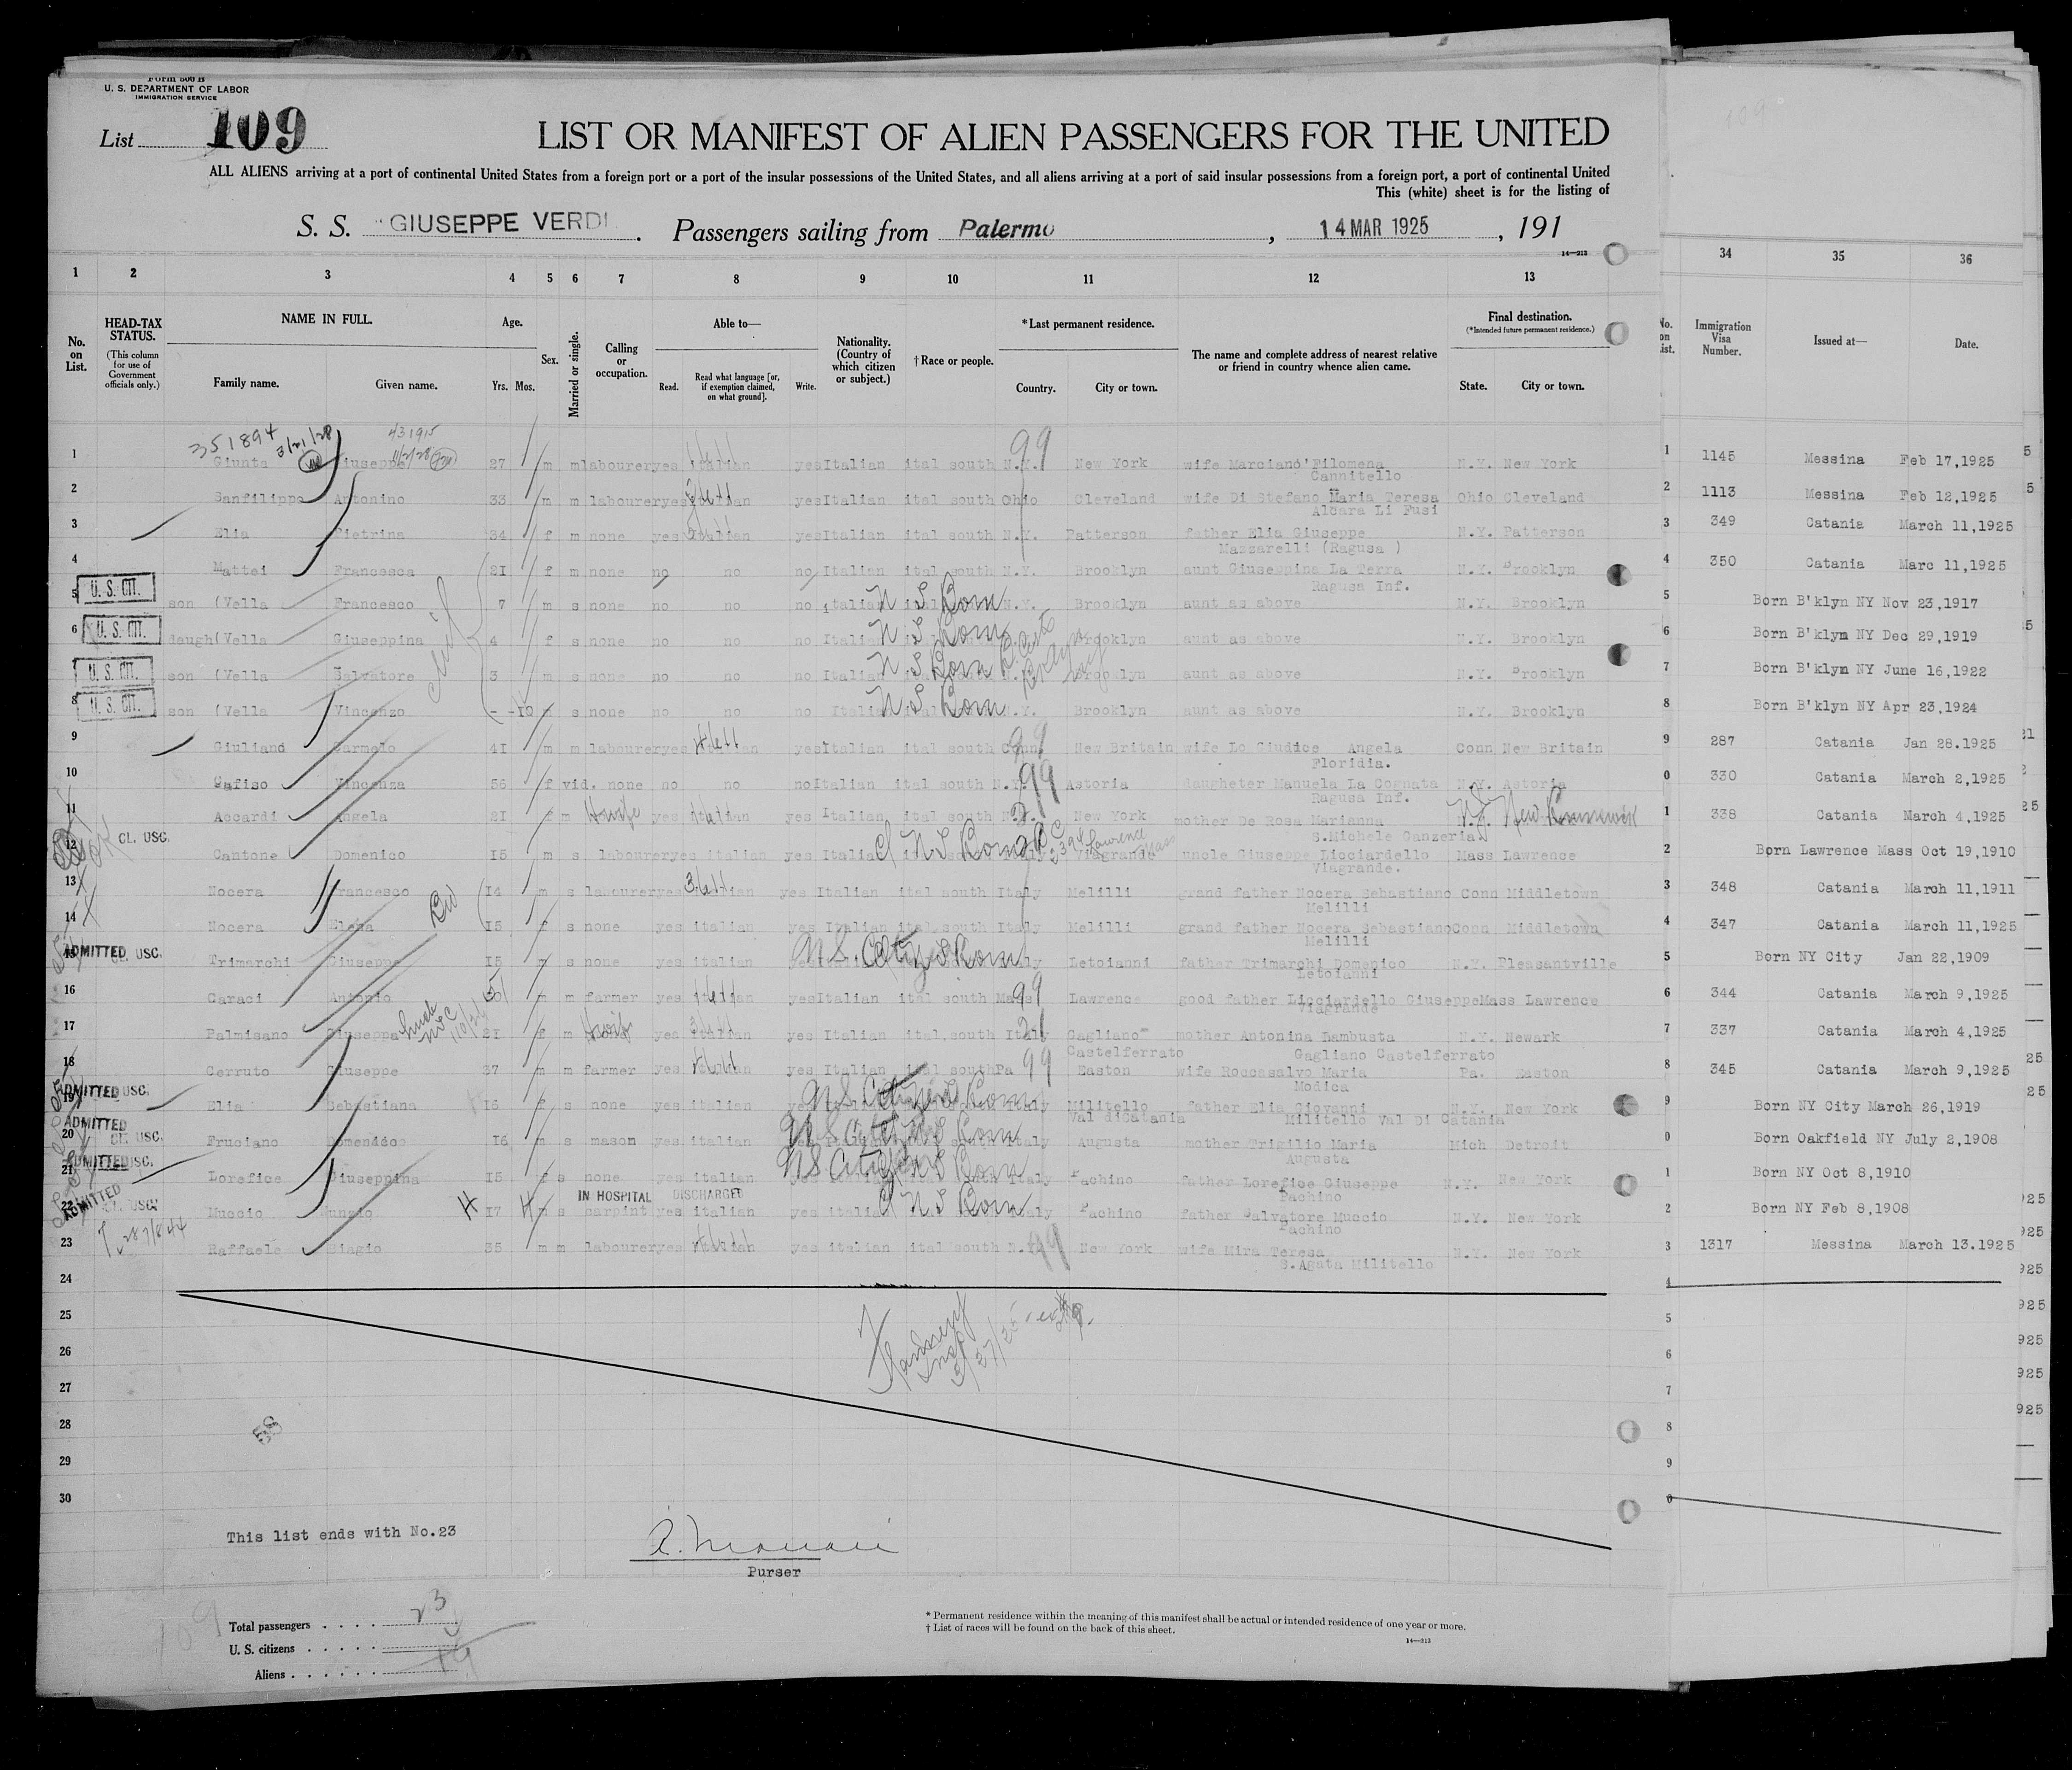 Form 500 B
U. S. DEPARTMENT OF LABOR
IMMIGRATION SERVICE
List 109
LIST OR MANIFEST OF ALIEN PASSENGERS FOR THE UNITED
ALL ALIENS arriving at a port of continental United States from a foreign port or a port of the insular possessions of the United States, and all aliens arriving at a port of said insular possessions from a foreign port, a port of continental United
This (white) sheet is for the listing of
S. S. "GIUSEPPE VERDI. Passengers sailing from Palermo, 14 MAR 1925, 191
14—213
1 2 3 4 5 6 7 8 9 10 11 12 13 34 35 36
No. on List.
HEAD-TAX STATUS.
(This column for use of Government officials only.)
NAME IN FULL.
Family name. Given name.
Age.
Yrs. Mos.
Sex.
Married or single.
Calling or occupation.
Able to—
Read. Read what language [or, if exemption claimed, on what ground]. Write.
Nationality. (Country of which citizen or subject.)
† Race or people.
* Last permanent residence.
Country. City or town.
The name and complete address of nearest relative or friend in country whence alien came.
Final destination.
(*Intended future permanent residence.)
State. City or town.
Immigration Visa Number. Issued at— Date.
351894 3/21/28
1 Giunta Giuseppe 27 m m labourer yes italian yes Italian ital south N.Y. New York wife Marciano' Filomena N.Y. New York 1145 Messina Feb 17,1925
Cannitello
2 Sanfilippo Antonino 33 m m labourer yes italian yes Italian ital south Ohio Cleveland wife Di Stefano Maria Teresa Ohio Cleveland 1113 Messina Feb 12,1925
Alcara Li Fusi
3 Elia Pietrina 34 f m none yes italian yes Italian ital south N.Y. Patterson father Elia Giuseppe N.Y. Patterson 349 Catania March 11,1925
Mazzarelli (Ragusa )
4 Mattei Francesca 21 f m none no no no Italian ital south N.Y. Brooklyn aunt Giuseppina La Terra N.Y. Brooklyn 350 Catania Marc 11,1925
Ragusa Inf.
5 U. S. CIT. son (Vella Francesco 7 m s none no no no italian U S Born N.Y. Brooklyn aunt as above N.Y. Brooklyn Born B'klyn NY Nov 23,1917
6 U. S. CIT. daugh(Vella Giuseppina 4 f s none no no no Italian U S Born Brooklyn aunt as above N.Y. Brooklyn Born B'klyn NY Dec 29,1919
7 U. S. CIT. son (Vella Salvatore 3 m s none no no no Italian U.S Born Brooklyn aunt as above N.Y. Brooklyn Born B'klyn NY June 16,1922
8 U. S. CIT. son (Vella Vincenzo - -10 m s none no no no Italian U.S Born N.Y. Brooklyn aunt as above N.Y. Brooklyn Born B'klyn NY Apr 23,1924
9 Giuliano Carmelo 41 m m labourer yes italian yes Italian ital south Conn New Britain wife Lo Giudice Angela Conn New Britain 287 Catania Jan 28.1925
Floridia.
10 Cafiso Vincenza 56 f vid. none no no no Italian ital south N.Y. 99 Astoria daugheter Manuela La Cognata N.Y. Astoria 330 Catania March 2,1925
Ragusa Inf.
11 Accardi Angela 21 f m Hwife yes italian yes Italian ital south New York mother De Rosa Marianna New Brunswick 338 Catania March 4,1925
S.Michele Ganzeria
12 CL. USC. Cantone Domenico 15 m s labourer yes italian yes Italian U S Born Italy Viagrande uncle Giuseppe Licciardello Mass Lawrence Born Lawrence Mass Oct 19,1910
Viagrande.
13 Nocera Francesco 14 m s labourer yes italian yes Italian ital south Italy Melilli grand father Nocera Sebastiano Conn Middletown 348 Catania March 11,1911
Melilli
14 Nocera Elena 15 f s none yes italian yes Italian ital south Italy Melilli grand father Nocera Sebastiano Conn Middletown 347 Catania March 11,1925
Melilli
15 ADMITTED CL. USC. Trimarchi Giuseppe 15 m s none yes italian U.S. Born Italy Letoianni father Trimarchi Domenico N.Y. Pleasantville Born NY City Jan 22,1909
Letoianni
16 Caraci Antonio m m farmer yes italian yes Italian ital south Mass 99 Lawrence good father Licciardello Giuseppe Mass Lawrence 344 Catania March 9,1925
Viagrande
17 Palmisano Giuseppa 21 f m Hwife yes italian yes Italian ital.south Italy Gagliano mother Antonina Bambusta N.Y. Newark 337 Catania March 4,1925
Castelferrato Gagliano Castelferrato
18 Cerruto Giuseppe 37 m m farmer yes italian yes Italian ital south Pa 99 Easton wife Roccasalvo Maria Pa. Easton 345 Catania March 9,1925
Modica
19 ADMITTED USC. Elia Sebastiana 16 f s none yes italian U.S. Citizen Born Italy Militello father Elia Giovanni N.Y. New York Born NY City March 26,1919
Val diCatania Militello Val Di Catania
20 ADMITTED CL. USC. Fruciano Domenico 16 m s mason yes italian U S Citizen Born Italy Augusta mother Trigilio Maria Mich Detroit Born Oakfield NY July 2,1908
Augusta
21 ADMITTED USC. Lorefice Giuseppina 15 f s none yes italian U S Citizen Born Italy Pachino father Lorefice Giuseppe N.Y. New York Born NY Oct 8,1910
Pachino
IN HOSPITAL DISCHARGED
22 ADMITTED CL. USC. Muccio Nunzio 17 H m s carpint yes italian yes italian U S Born Italy Pachino father Salvatore Muccio N.Y. New York Born NY Feb 8,1908
Pachino
23 Raffaele Biagio 35 m m labourer yes italian yes italian ital south N.Y. 99 New York wife Mira Teresa N.Y. New York 1317 Messina March 13.1925
S.Agata Militello
24
25
26
27
28
29
30
58
This list ends with No.23
Purser
Total passengers 23
U. S. citizens
Aliens
109
* Permanent residence within the meaning of this manifest shall be actual or intended residence of one year or more.
† List of races will be found on the back of this sheet.
14—213